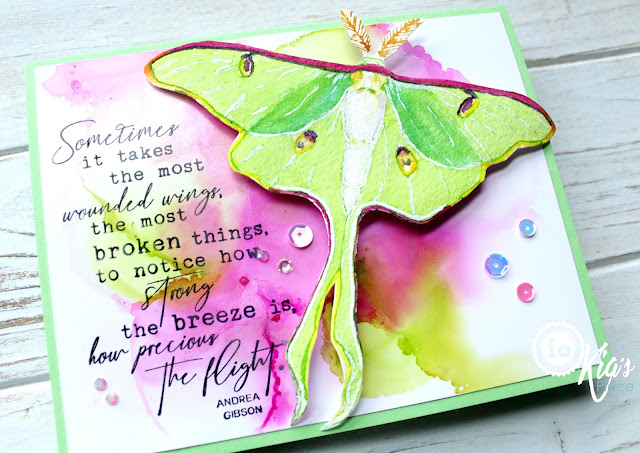 Sometimes
it takes
the most
wounded wings,
the most
broken things,
to notice how
strong
the breeze is,
how precious
the flight
ANDREA
GIBSON
io
Kia's